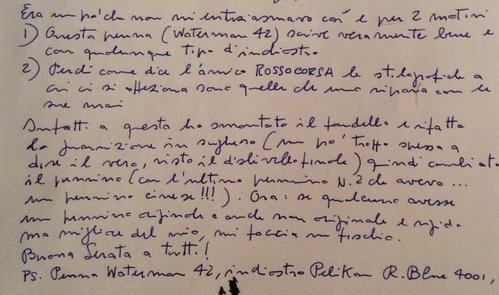 Era un po' che non mi entusiasmavo così e per 2 motivi
1) Questa penna (Waterman 42) scrive veramente bene e
con qualunque tipo d'inchiostro
2) Perché come dice l'amico ROSSOCORSA le stilografiche a
cui ci si affeziona sono quelle che uno ripara con le
sue mani
Infatti a questa ho smontato il fondello e rifatto
la guarnizione in sughero (un po' troppo spessa a
dire il vero, visto il dislivello finale) quindi cambiato
il pennino (con l'ultimo pennino N.2 che avevo ...
un pennino cinese!!!). Ora: se qualcuno avesse
un pennino originale o anche non originale e rigido
ma migliore del mio, mi faccia un fischio.
Buona serata a tutti!
PS. Penna Waterman 42, inchiostro Pelikan R.Blue 4001,